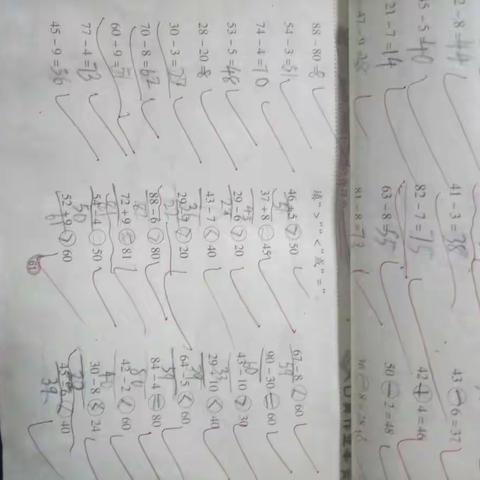 41 - 3 = 38
43 - 6 = 37
82 - 7 = 75
42 + 4 = 46
21 - 7 = 14
63 - 8 = 55
50 - 2 = 48
47 - 9 = 38
81 - 8 = 73
88 - 80 8
54 - 3 = 51
74 - 4 = 70
53 - 5 = 48
28 - 20 8
30 - 3 = 27
70 - 8 = 62
60 + 9 =
77 - 4 = 73
45 - 9 = 36
填“>”“<”或“=”。
46 + 5 > 50
67 - 8 < 60
37 + 8 = 45
90 - 30 = 60
29 - 6 > 20
43 - 10 > 30
43 - 7 < 40
29 10 < 40
> 20
64 - 5 < 60
88 - 6 > 80
84 - 4 = 80
72 + 9 = 81
42 - 2 < 60
54 - 4 = 50
30 - 8 < 24
52 + 9 > 60
< 40
61